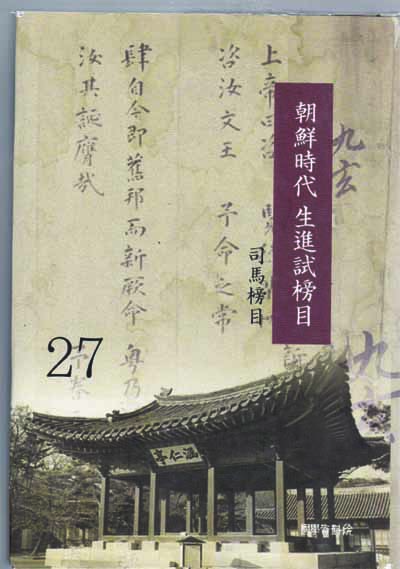 朝鮮時代 生進試榜目
司馬榜目
27
九玄
九
上帝曰咨
咨汝文王 予命之常
肆自今即舊邦而新厥命 粵乃
汝其誕膺哉
涵仁亭
國學資料院